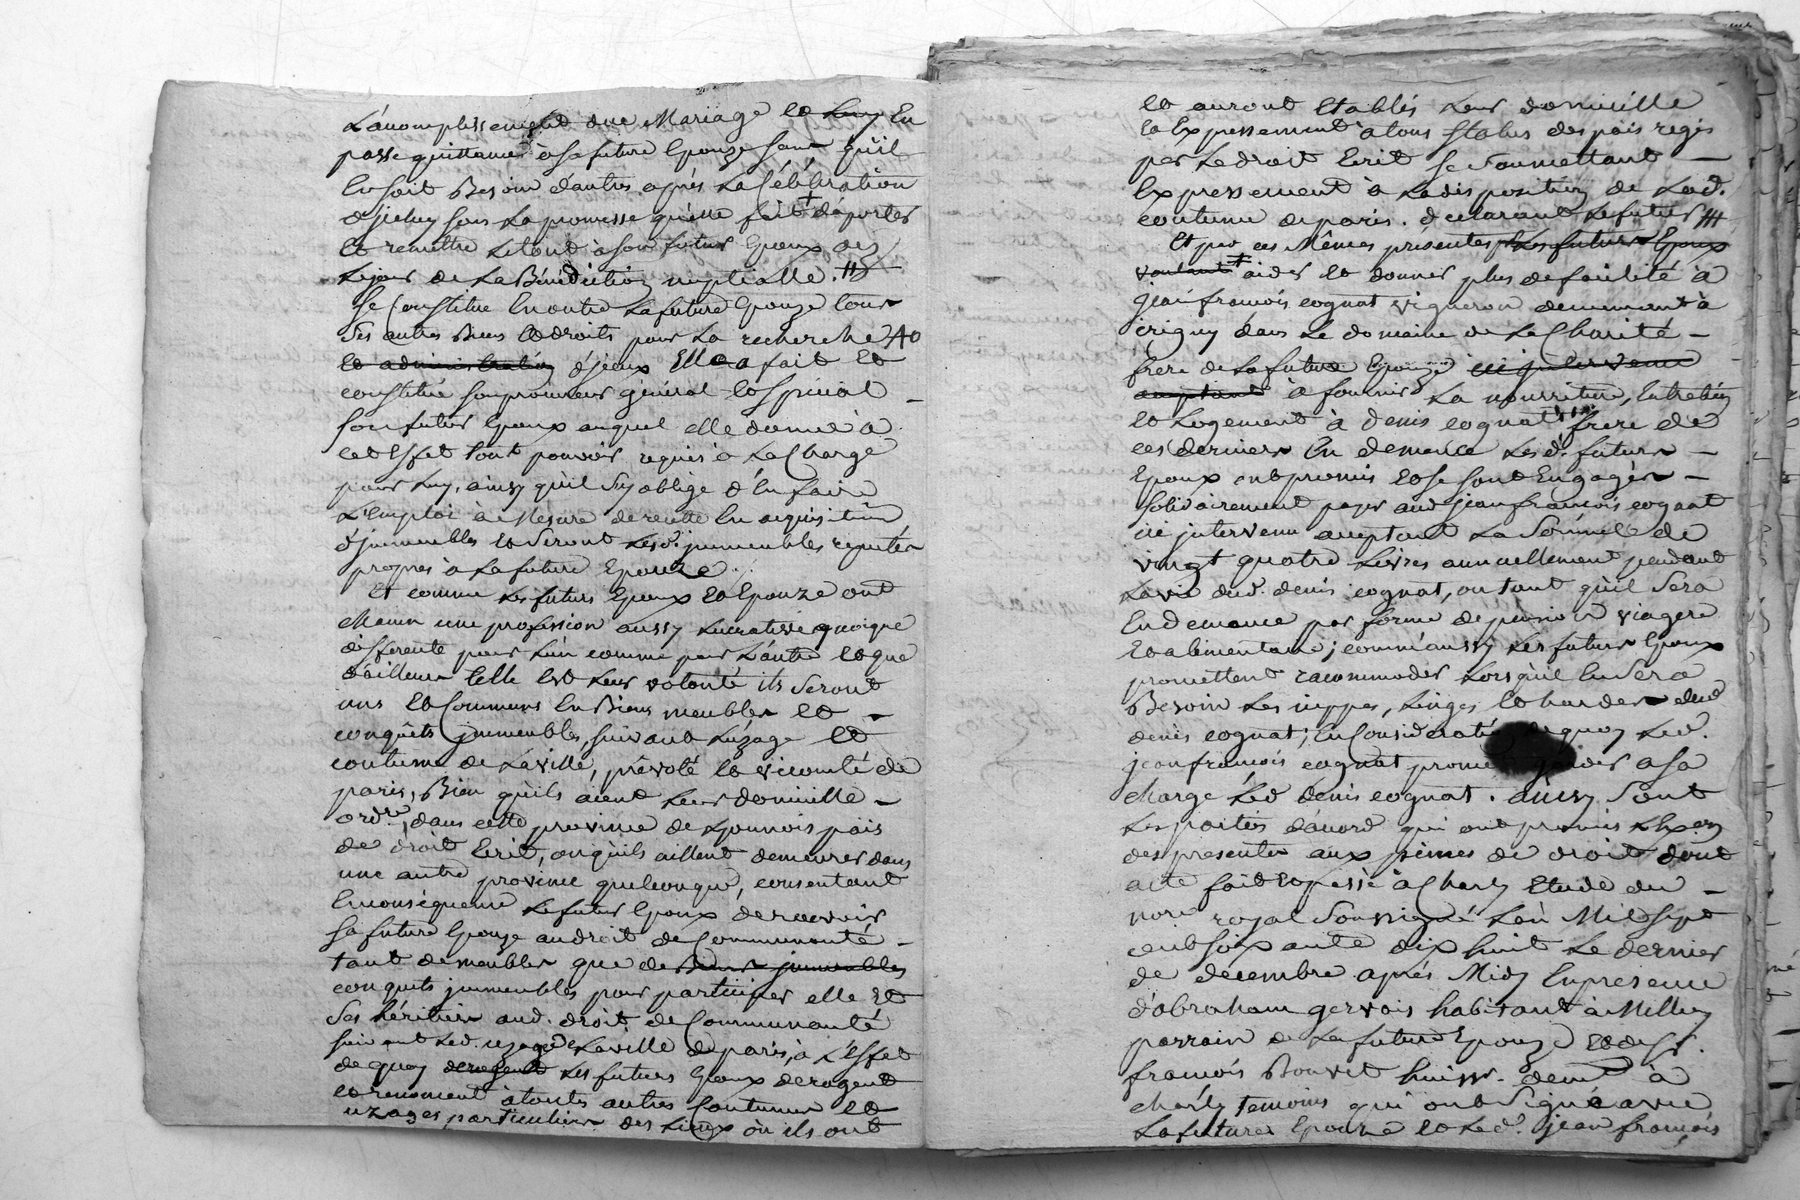 L'accomplissement due Mariage et Luy En
passe quittance à sa future Epouze sans qu'il
En soit Besoin d'autre après La Célébration
d'jceluy sous La promesse qu'elle fait d'aporter
et remettre Letout à son futur Epoux
Lejour de La Bénédiction nuptialle.
Se Constitue En outre La future Epouze tous
Ses autres Biens et droits pour La recherche
et administration d'jceux Elle a fait et
constitué son procureur général et spécial
son futur Epoux auquel elle donne à
cet Effet tout pouvoir requis à La Charge
pour Luy, ainsy qu'il s'y oblige d'En faire
L'Emploi à Mesure de recette En acquisition
d'jmmeubles et Seront Lesd. jmmeubles reputés
propres à La future Epouze.
Et comme Les futurs Epoux et Epouze ont
chacun une profession aussy Lucrative quoique
différente pour L'un comme pour L'autre et que
d'ailleurs telle Est Leur volonté ils Seront
uns et Communs En Biens meubles et
conquêts jmmeubles, suivant L'uzage et
coutume de La ville, prévoté et vicomté de
paris, Bien qu'ils aient Leur domicille
ordre, dans cette province de Lyonnois païs
de droit Ecrit, ou qu'ils aillent demeurer dans
une autre province quelconque, consentant
En conséquence Le futur Epoux de recevoir
Sa future Epouze au droit de Communauté
tant de meubles que de Biens jmmeubles
conquêts jmmeubles pour participer elle Et
Ses héritiers aud. droit de Communauté
suivant Led. uzage de La ville de paris, à L'Effet
de quoy derogent Les futurs Epoux derogent
et renoncent à toutes autres Coutumes et
uzages particuliers des Lieux où ils ont
et auront Etablis Leur domicille
et Expressement à tous Statuts des païs regis
par Le droit Ecrit Se Soumettant
Expressement à La disposition de Lad.
coutume de paris. declarant Le futur
Et par ces Mêmes présentes Les futurs Epoux
voulant aider et donner plus de facilité à
jean françois cognat vigneron demeurant à
irigny dans Le domaine de La Charité
frère de La future Epouze ici jntervenu
acceptant à fournir La nourriture, Entretien
et Logement à denis cognat frere de
ces derniers En demence Lesd. futurs
Epoux ont promis et Se Sont Engagés
Solidairement payer aud jean françois cognat
ici jntervenu acceptant La Somme de
vingt quatre Livres annuellement pendant
La vie dud. denis cognat, ou tant qu'il Sera
En demance par forme de pension viagere
Et alimentaire; comm'aussy Les futurs Epoux
promettent racommoder Lorsqu'il En Sera
Besoin Les nippes, Linges et hardes dud
denis cognat; En Considération de quoy Led.
jean françois cognat promet garder a Sa
charge Led denis cognat. ainsy Sont
Les parties d'acord qui ont promis
des presentes aux peines de droit dont
acte fait et passé à Charly Etude du
nore royal Soussigné L'an Mil Sept
cent Soixante dix huit Le dernier
de décembre après Midy En presence
d'abraham gervais habitant à Millery
parrain de La future Epouze et de Sr.
françois Bouvet huissr. demt à
charly temoins qui ont Signé avec
La future Epouze et Led. jean françois